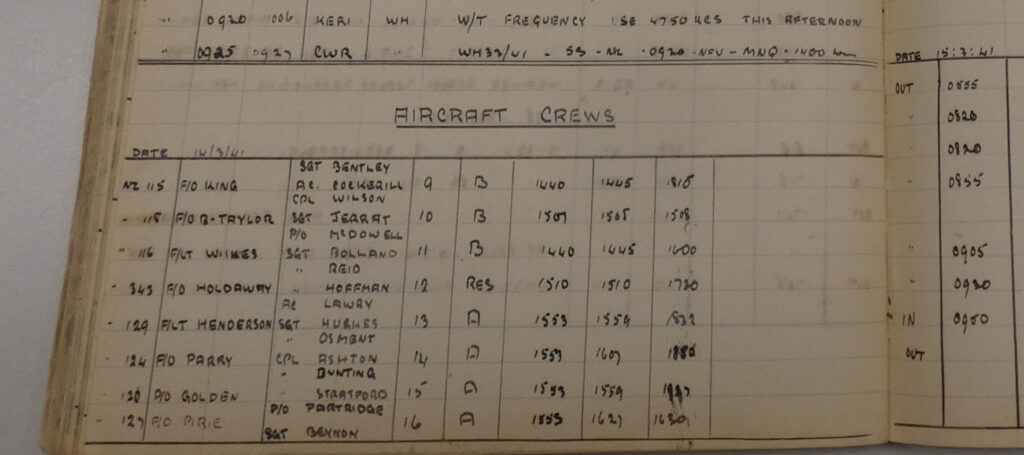 " 0920 1006 KERI WH W/T FREQUENCY 4750 KCS THIS AFTERNOON
" 0925 0927 CWR WH33/41 - 53 - NZ - 0920 - NOV - MNQ - 1400
AIRCRAFT CREWS
DATE 14/3/41
SGT BENTLEY
NZ 115 F/O KING AC. COCKERILL 9 B 1440 1445 1815
CPL WILSON
" 118 F/O B-TAYLOR SGT JERRAT 10 B 1507 1508
P/O McDOWELL
" 116 F/LT WILKES SGT BOLLAND 11 B 1440 1445 1600
" REID
" 343 F/O HOLDAWAY " HOFFMAN 12 RES 1510 1510 1720
AC LAWRY
" 129 F/LT HENDERSON SGT HUGHES 13 A 1553 1559
" OSMENT
" 124 F/O PARRY CPL ASHTON 14 A 1553 1607
" BUNTING
" 120 GOLDEN " STRATFORD 15 A 1553 1559
P/O PARTRIDGE
" 127 F/O PIRIE 16 A 1553 1627 1630
SGT BEYNON
DATE 15:3:41
OUT 0555
" 0820
" 0820
" 0855
" 0905
" 0920
IN 0950
OUT